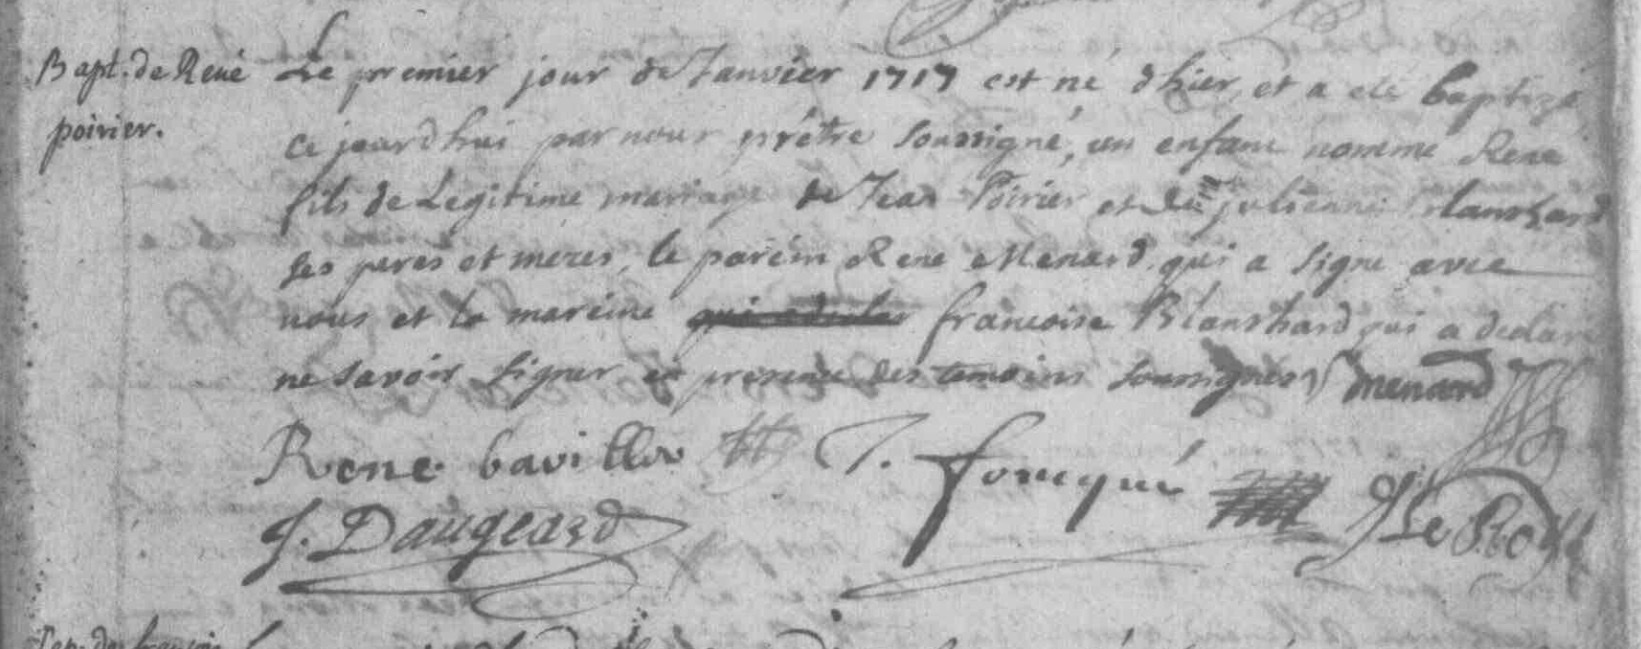 Bapt. de René
poirier.
Le premier jour de Janvier 1717 est né d'hier, et a eté baptizé
ce jourd'hui par nous prétre soussigné, un enfant nommé René
fils de Legitime mariage de Jean Poirier et de julienne Blanshard
ses peres et meres, le parein René Menard qui a signé avec
nous et la mareine francoise Blanshard qui a declaré
ne savoir signer en presence des temoins soussignez menard
René bavillov J. fouqué Le
J. Daugeard